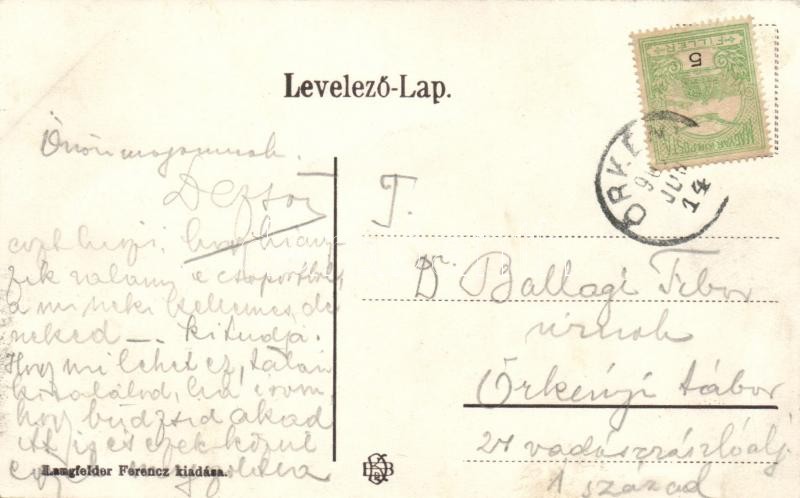 Levelező-Lap.
FILLÉR
5
MAGYAR KIR. POSTA
ÖRKÉNY
JUL
14
Önönmagamnak.
Dezső
azt hiszi, hogy hiány-
zik valami e csoportból,
a mi neki kellemes, de
neked — kitudja.
Hogy mi lehet ez, talán
kitalálod, ha írom,
hogy
akad
itt is ezek közül
T.
Dr. Ballagi Tibor
úrnak
Örkényi tábor
vadászzászlóalj
1 század
Langfelder Ferencz kiadása.